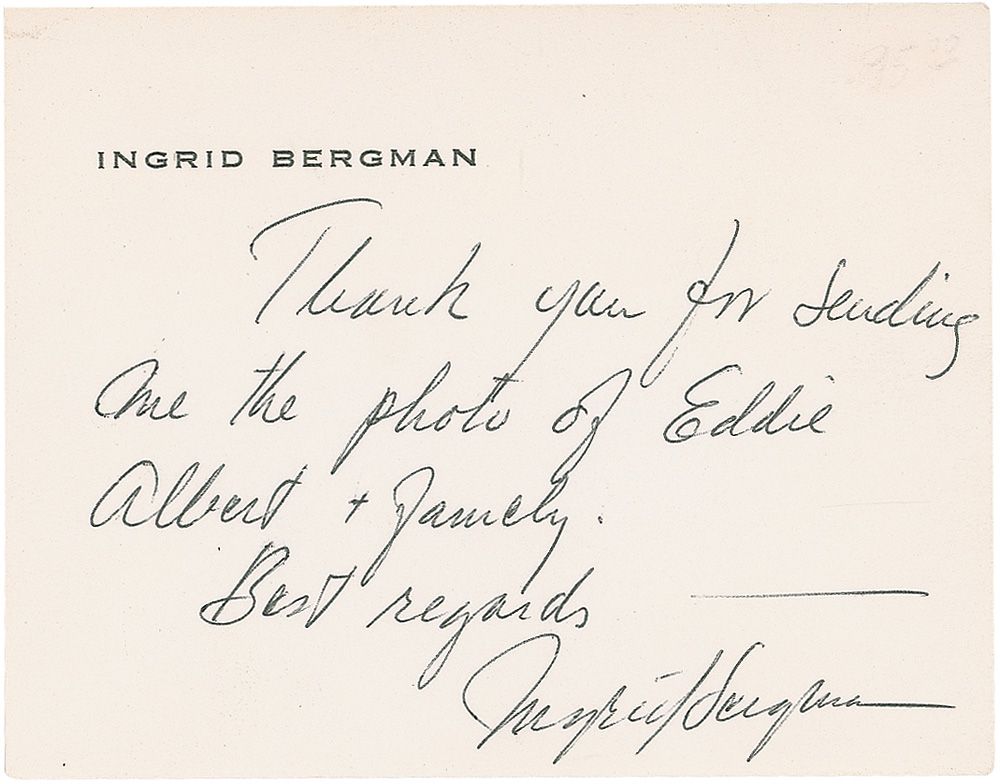 INGRID BERGMAN
Thank you for sending
me the photo of Eddie
Albert + family.
Best regards
Ingrid Bergman